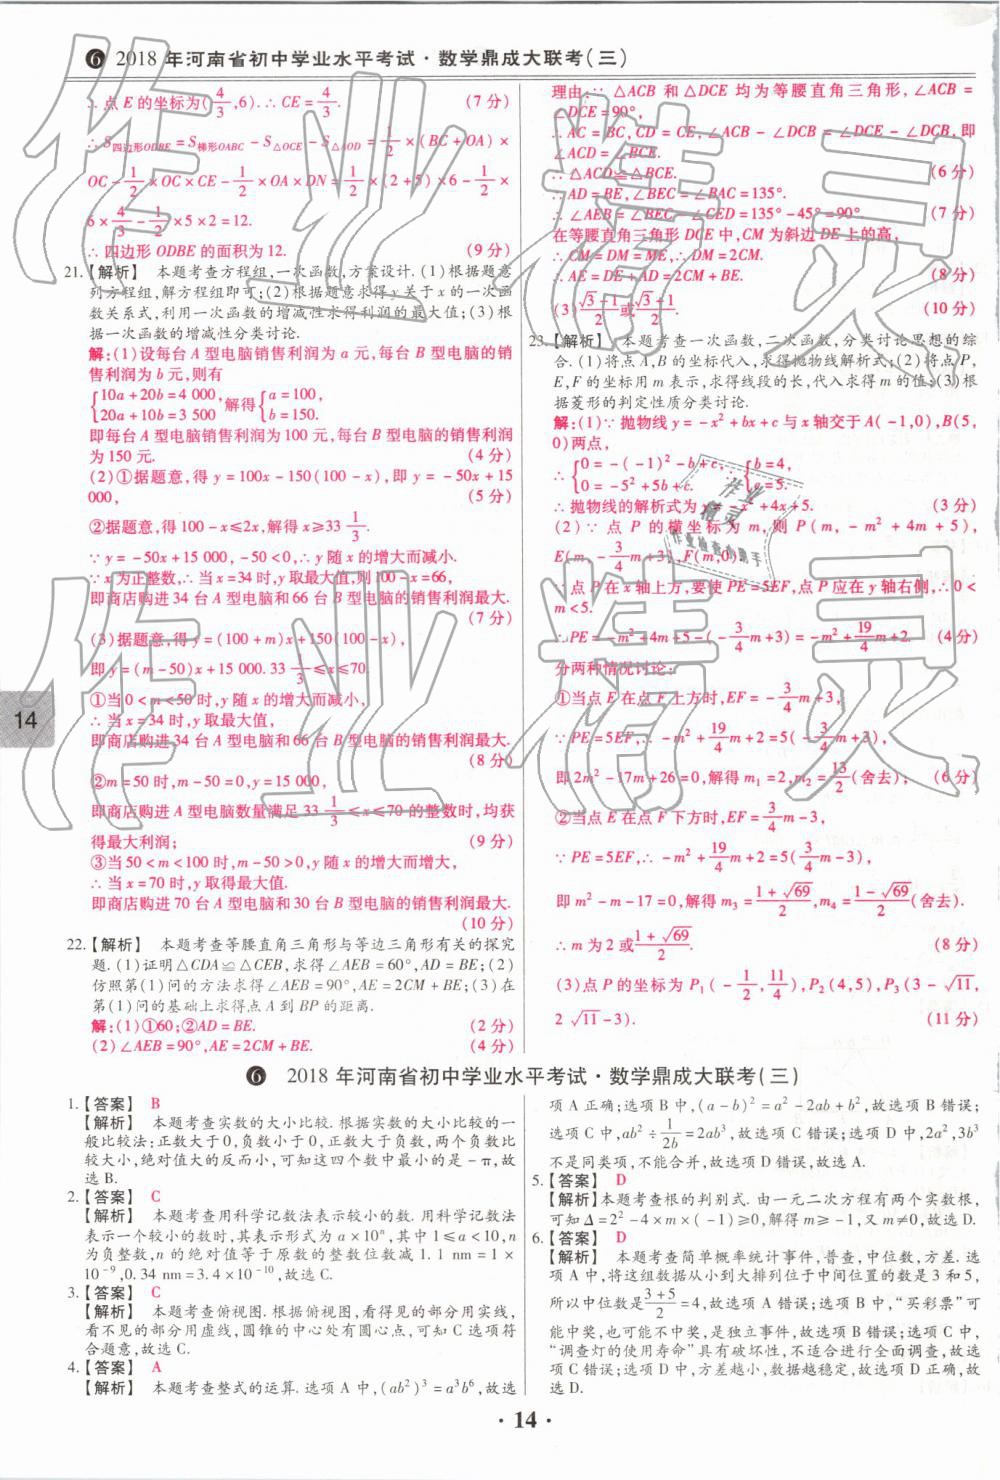 ❻ 2018 年河南省初中学业水平考试·数学鼎成大联考(三)
∴点 E 的坐标为(4/3,6).∴CE=4/3. (7 分)
∴S四边形ODBE=S梯形OABC-S△OCE-S△AOD=1/2×(BC+OA)×
OC-1/2×OC×CE-1/2×OA×DN=1/2×(2+5)×6-1/2×
6×4/3-1/2×5×2=12.
∴四边形 ODBE 的面积为 12. (9 分)
21.【解析】 本题考查方程组,一次函数,方案设计.(1)根据题意
列方程组,解方程组即可;(2)根据题意求得 y 关于 x 的一次函
数关系式,利用一次函数的增减性求得利润的最大值;(3)根
据一次函数的增减性分类讨论.
解:(1)设每台 A 型电脑销售利润为 a 元,每台 B 型电脑的销
售利润为 b 元,则有
{10a+20b=4 000, 20a+10b=3 500 解得{a=100, b=150.
即每台 A 型电脑销售利润为 100 元,每台 B 型电脑的销售利润
为 150 元. (4 分)
(2)①据题意,得 y=100x-150(100-x),即 y=-50x+15
000, (5 分)
②据题意,得 100-x≤2x,解得 x≥33 1/3.
∵y=-50x+15 000,-50<0,∴y 随 x 的增大而减小.
∵x 为正整数,∴当 x=34 时,y 取最大值,则 100-x=66,
即商店购进 34 台 A 型电脑和 66 台 B 型电脑的销售利润最大.
(7 分)
(3)据题意,得 y=(100+m)x+150(100-x),
即 y=(m-50)x+15 000.33 1/3≤x≤70.
①当 0<m<50 时,y 随 x 的增大而减小,
∴当 x=34 时,y 取最大值,
即商店购进 34 台 A 型电脑和 66 台 B 型电脑的销售利润最大.
(8 分)
②m=50 时,m-50=0,y=15 000,
即商店购进 A 型电脑数量满足 33 1/3≤x≤70 的整数时,均获
得最大利润; (9 分)
③当 50<m<100 时,m-50>0,y 随 x 的增大而增大,
∴当 x=70 时,y 取得最大值.
即商店购进 70 台 A 型电脑和 30 台 B 型电脑的销售利润最大.
(10 分)
22.【解析】 本题考查等腰直角三角形与等边三角形有关的探究
题.(1)证明△CDA≌△CEB,求得∠AEB=60°,AD=BE;(2)
仿照第(1)问的方法求得∠AEB=90°,AE=2CM+BE;(3)在
第(1)问的基础上求得点 A 到 BP 的距离.
解:(1)①60;②AD=BE. (2 分)
(2)∠AEB=90°,AE=2CM+BE. (4 分)
理由:∵△ACB 和△DCE 均为等腰直角三角形,∠ACB=
∠DCE=90°,
∴AC=BC,CD=CE,∠ACB-∠DCB=∠DCE-∠DCB,即
∠ACD=∠BCE.
∴△ACD≌△BCE. (6 分)
∴AD=BE,∠BEC=∠BAC=135°.
∴∠AEB=∠BEC-∠CED=135°-45°=90°. (7 分)
在等腰直角三角形 DCE 中,CM 为斜边 DE 上的高,
∴CM=DM=ME,∴DE=2CM.
∴AE=DE+AD=2CM+BE. (8 分)
(3)(√3-1)/2或(√3+1)/2. (10 分)
23.【解析】 本题考查一次函数,二次函数,分类讨论思想的综
合.(1)将点 A,B 的坐标代入,求得抛物线解析式;(2)将点 P,
E,F 的坐标用 m 表示,求得线段的长,代入求得 m 的值;(3)根
据菱形的判定性质分类讨论.
解:(1)∵抛物线 y=-x²+bx+c 与 x 轴交于 A(-1,0),B(5,
0)两点,
∴{0=-(-1)²-b+c, 0=-5²+5b+c. ∴{b=4, c=5.
∴抛物线的解析式为 y=-x²+4x+5. (3 分)
(2)∵点 P 的横坐标为 m,则 P(m,-m²+4m+5),
E(m,-3/4m+3),F(m,0),
∵点 P 在 x 轴上方,要使 PE=5EF,点 P 应在 y 轴右侧,∴0<
m<5.
∴PE=-m²+4m+5-(-3/4m+3)=-m²+19/4m+2. (4 分)
分两种情况讨论:
①当点 E 在点 F 上方时,EF=-3/4m+3,
∵PE=5EF,∴-m²+19/4m+2=5(-3/4m+3),
即 2m²-17m+26=0,解得 m₁=2,m₂=13/2(舍去); (6 分)
②当点 E 在点 F 下方时,EF=3/4m-3,
∵PE=5EF,∴-m²+19/4m+2=5(3/4m-3),
即 m²-m-17=0,解得 m₃=(1+√69)/2,m₄=(1-√69)/2(舍去).
∴m 为 2 或(1+√69)/2. (8 分)
(3)点 P 的坐标为 P₁(-1/2,11/4),P₂(4,5),P₃(3-√11,
2√11-3). (11 分)
14
❻ 2018 年河南省初中学业水平考试·数学鼎成大联考(三)
1.【答案】 B
【解析】 本题考查实数的大小比较.根据实数的大小比较的一
般比较法:正数大于 0,负数小于 0,正数大于负数,两个负数比
较大小,绝对值大的反而小,可知这四个数中最小的是-π,故
选 B.
2.【答案】 C
【解析】 本题考查用科学记数法表示较小的数.用科学记数法
表示一个较小的数时,其表示形式为 a×10ⁿ,其中 1≤a<10,n
为负整数,n 的绝对值等于原数的整数位数减 1.1 nm=1×
10⁻⁹,0.34 nm=3.4×10⁻¹⁰,故选 C.
3.【答案】 C
【解析】 本题考查俯视图.根据俯视图,看得见的部分用实线,
看不见的部分用虚线,圆锥的中心处有圆心点,可知 C 选项符
合题意,故选 C.
4.【答案】 A
【解析】 本题考查整式的运算.选项 A 中,(ab²)³=a³b⁶,故选
项 A 正确;选项 B 中,(a-b)²=a²-2ab+b²,故选项 B 错误;
选项 C 中,ab²÷1/2b=2ab³,故选项 C 错误;选项 D 中,2a²,3b³
不是同类项,不能合并,故选项 D 错误,故选 A.
5.【答案】 D
【解析】本题考查根的判别式.由一元二次方程有两个实数根,
可知 Δ=2²-4×m×(-1)≥0,解得 m≥-1,又 m≠0,故选 D.
6.【答案】 D
【解析】 本题考查简单概率统计事件,普查,中位数,方差.选
项 A 中,将这组数据从小到大排列位于中间位置的数是 3 和 5,
所以中位数是(3+5)/2=4,故选项 A 错误;选项 B 中,“买彩票”可
能中奖,也可能不中奖,是独立事件,故选项 B 错误;选项 C 中,
“调查灯的使用寿命”具有破坏性,不适合进行全面调查,故选
项 C 错误;选项 D 中,方差越小,数据越稳定,故选项 D 正确,故
选 D.
· 14 ·
作业精灵
作业精灵
作业
精灵
作业检查小助手